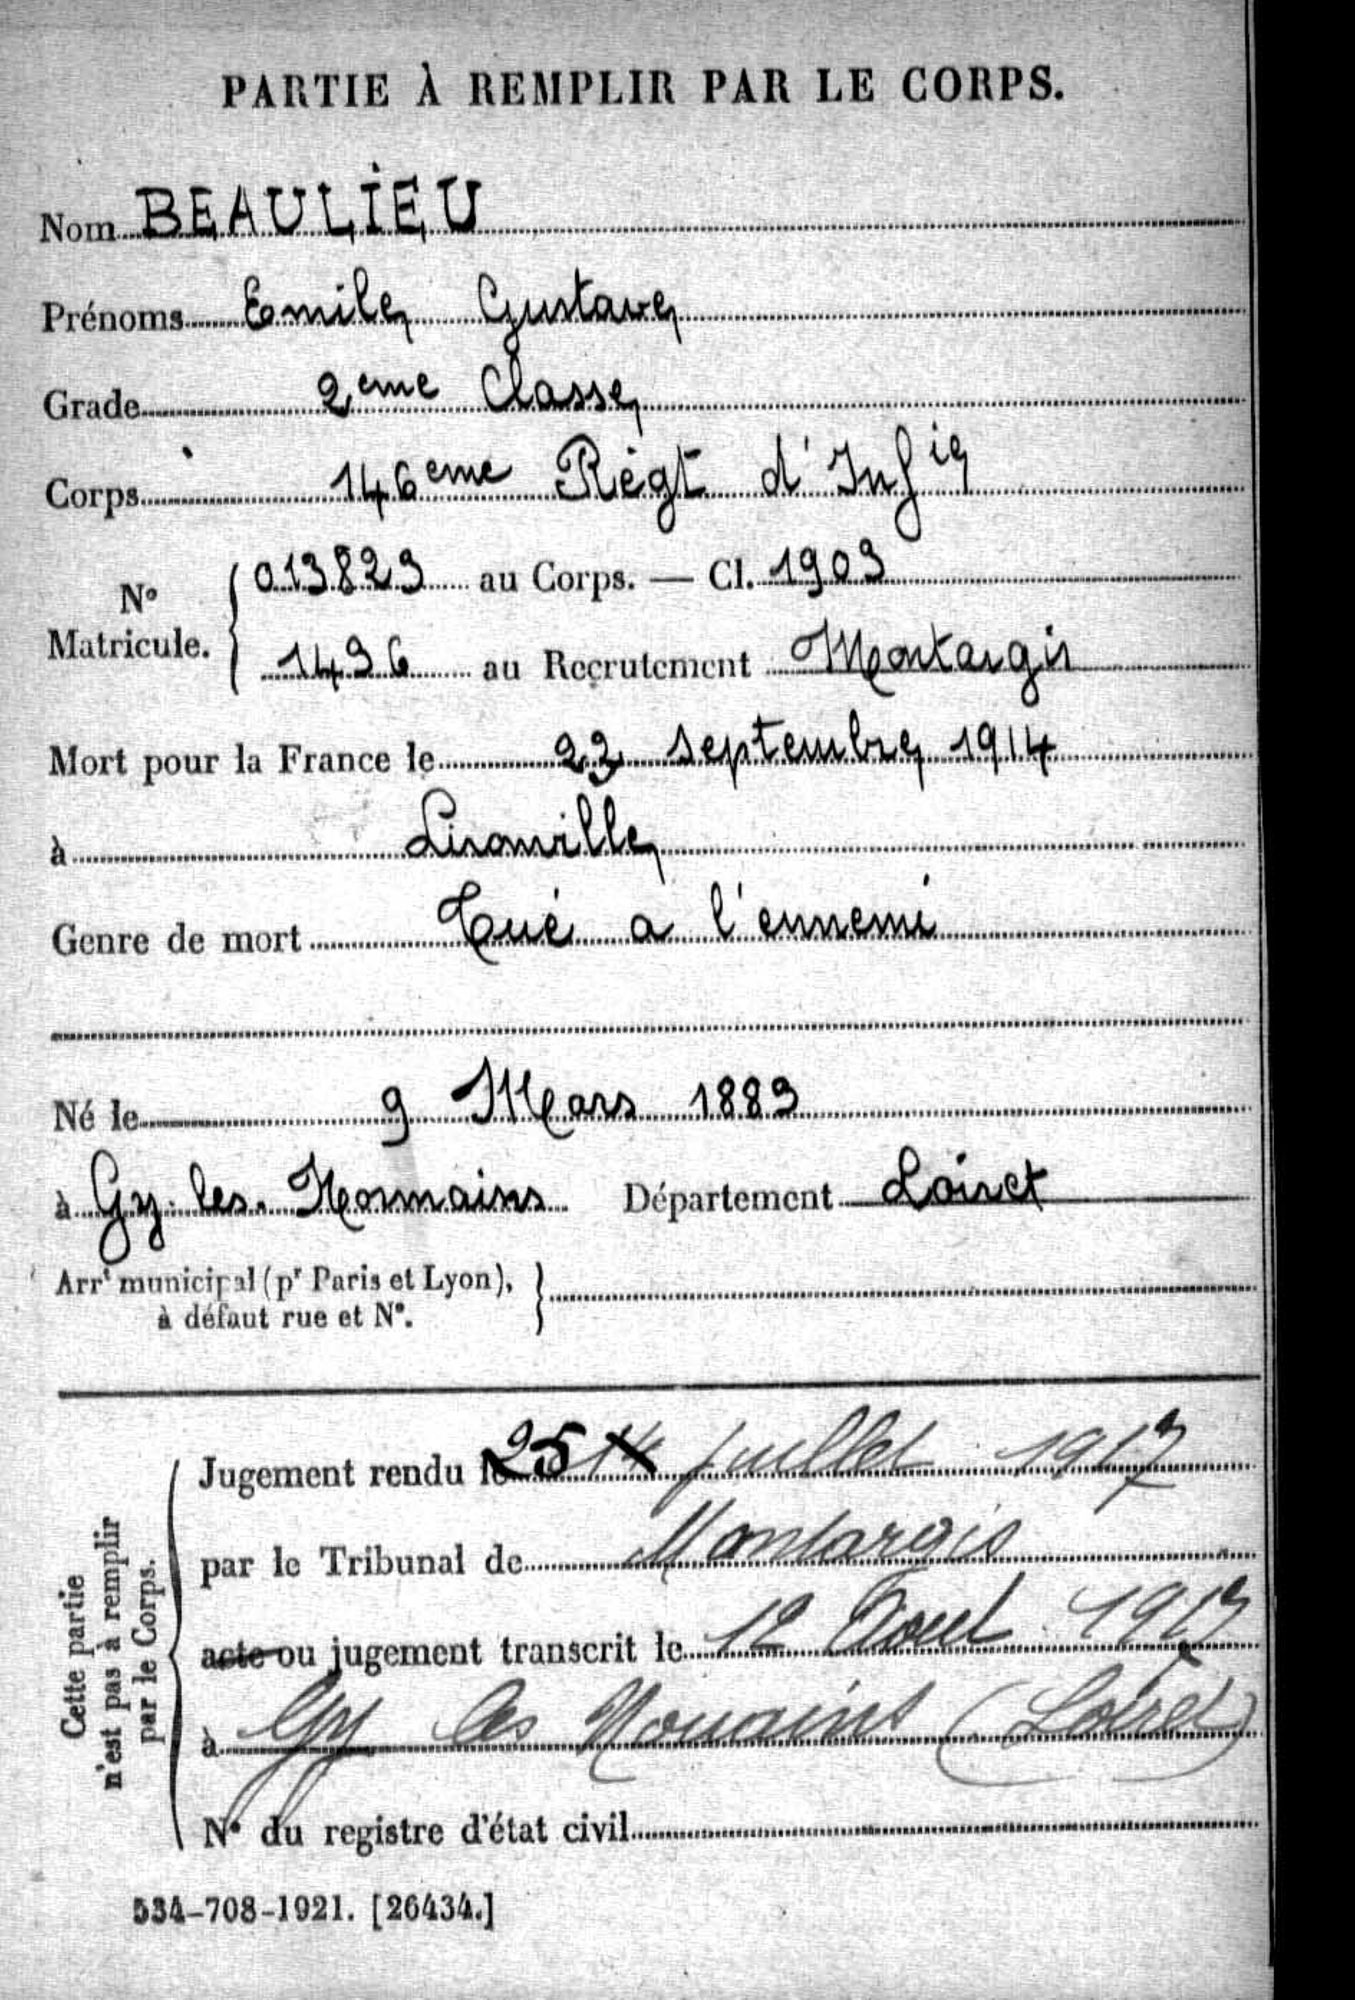 PARTIE À REMPLIR PAR LE CORPS.
Nom BEAULIEU
Prénoms Emile Gustave
Grade 2eme Classe
Corps 146eme Régt d'Infie
N° Matricule. { 013823 au Corps. — Cl. 1903
1496 au Recrutement Montargis
Mort pour la France le 23 septembre 1914
à Lironville
Genre de mort Tué a l'ennemi
Né le 9 Mars 1883
à Gy. les. Nonnains Département Loiret
Arrt municipal (pr Paris et Lyon), }
à défaut rue et N°.
Cette partie
n'est pas à remplir
par le Corps.
Jugement rendu le 25 juillet 1917
par le Tribunal de Montargis
acte ou jugement transcrit le 12 Aout 1917
à Gy les Nonains (Loiret)
N° du registre d'état civil
534-708-1921. [26434.]